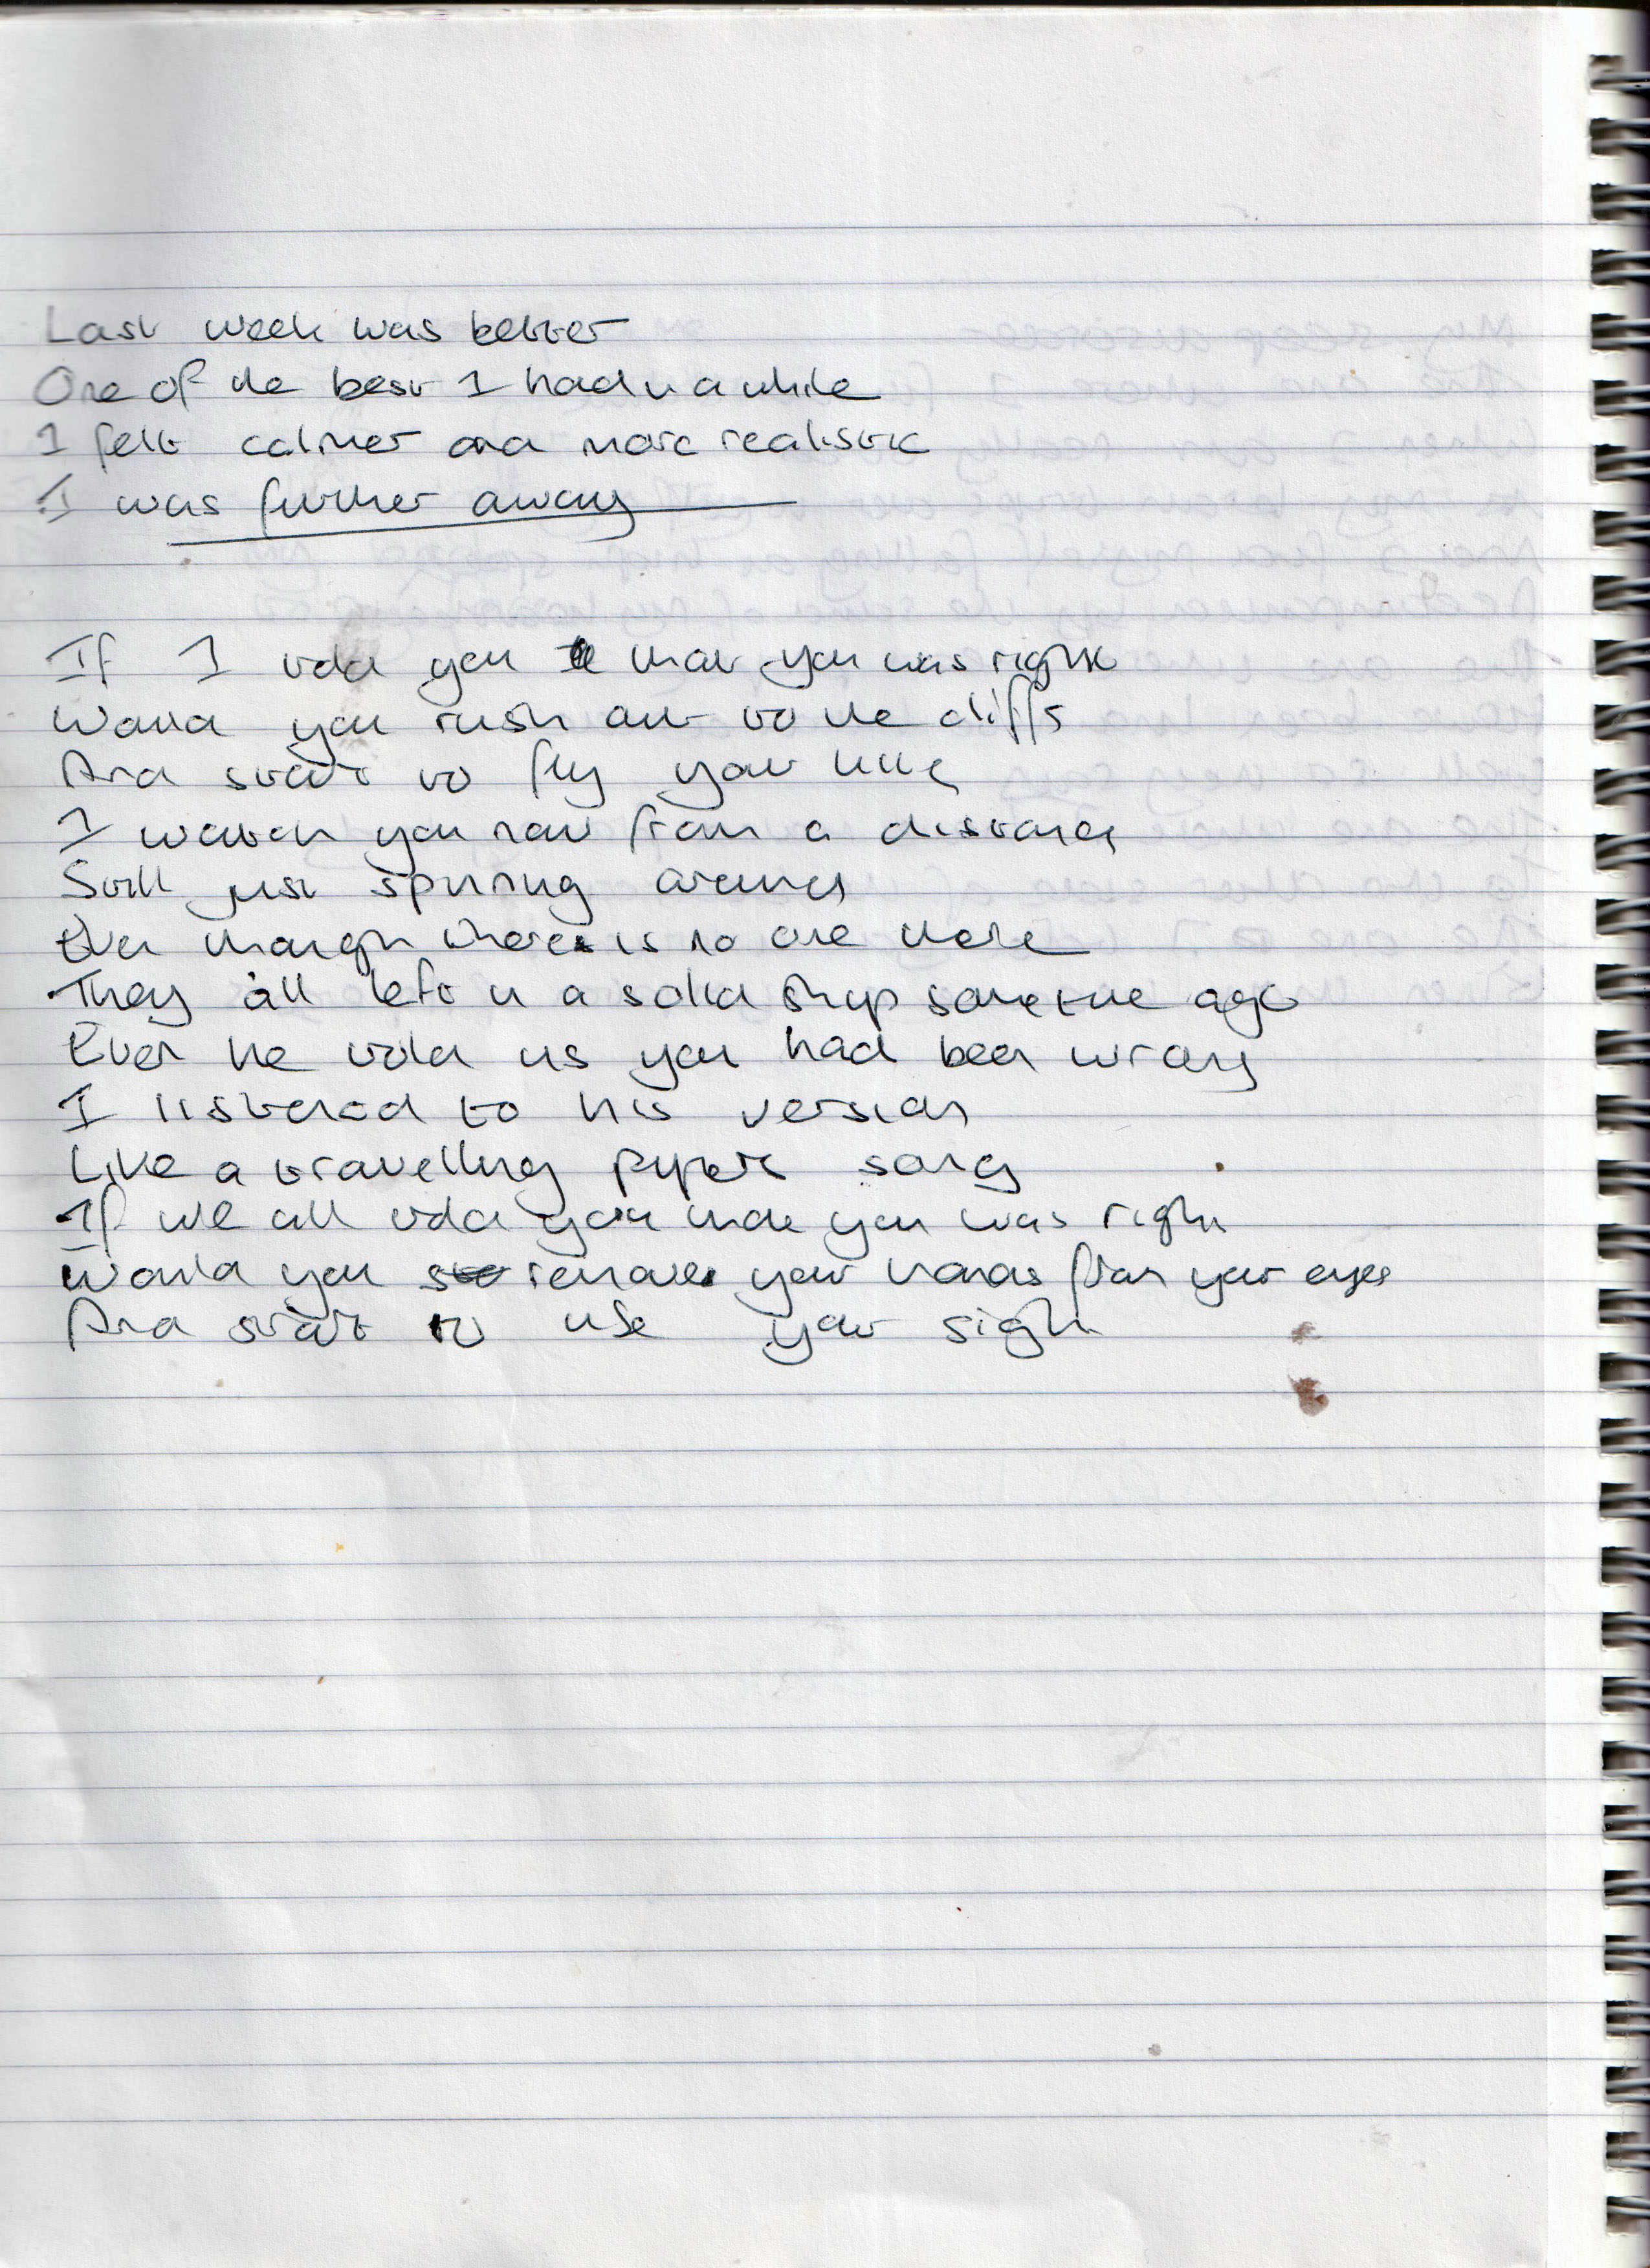 Last week was better
One of the best I had in a while
I felt calmer and more realistic
I was further away
If I told you that you was right
Would you rush out to the cliffs
And start to fly your kite
I watch you now from a distance
Still just spinning around
Even though theres is no one there
They all left in a solid ship sometime ago
Ever he told us you had been wrong
I listened to his version
Like a travelling pipers song
If we all told you that you was right
Would you remove your hands from your eyes
And start to use your sight